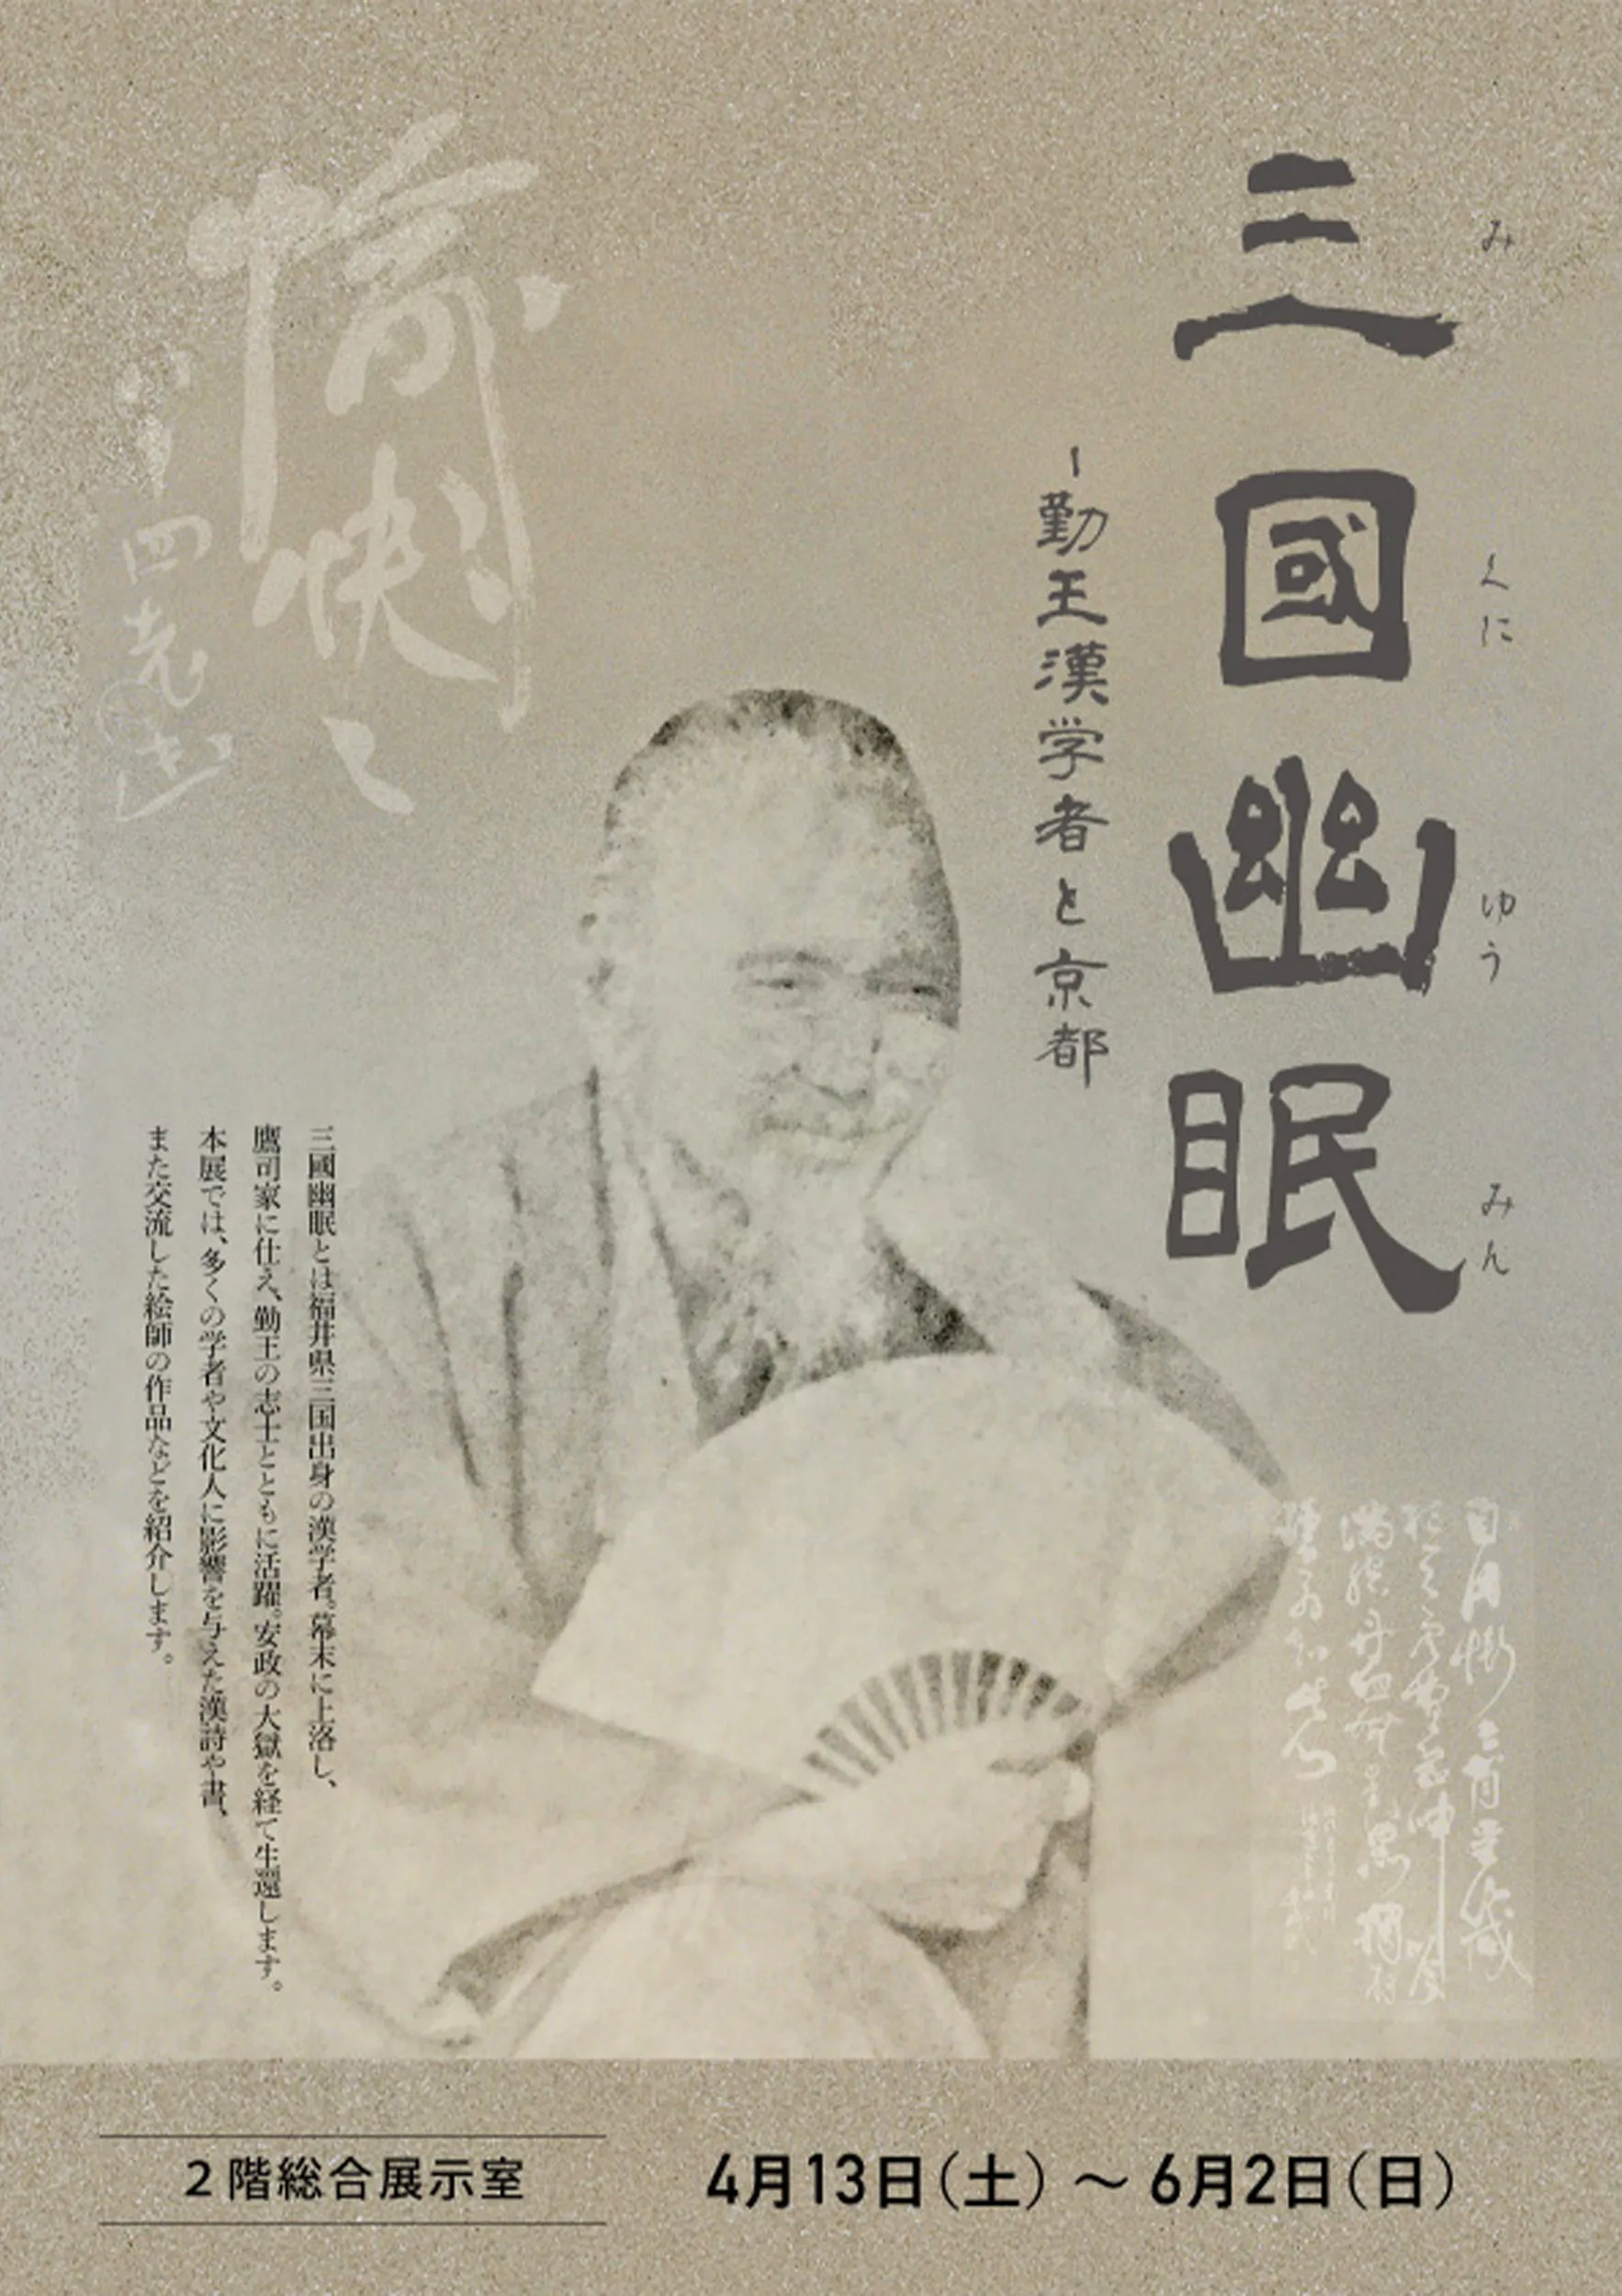 三國幽眠
み くに ゆう みん
ー勤王漢学者と京都
愉快々
三國幽眠とは福井県三国出身の漢学者。幕末に上落し、
鷹司家に仕え、勤王の志士とともに活躍。安政の大獄を経て生還します。
本展では、多くの学者や文化人に影響を与えた漢詩や書、
また交流した絵師の作品などを紹介します。
2階総合展示室
4月13日（土）～6月2日（日）